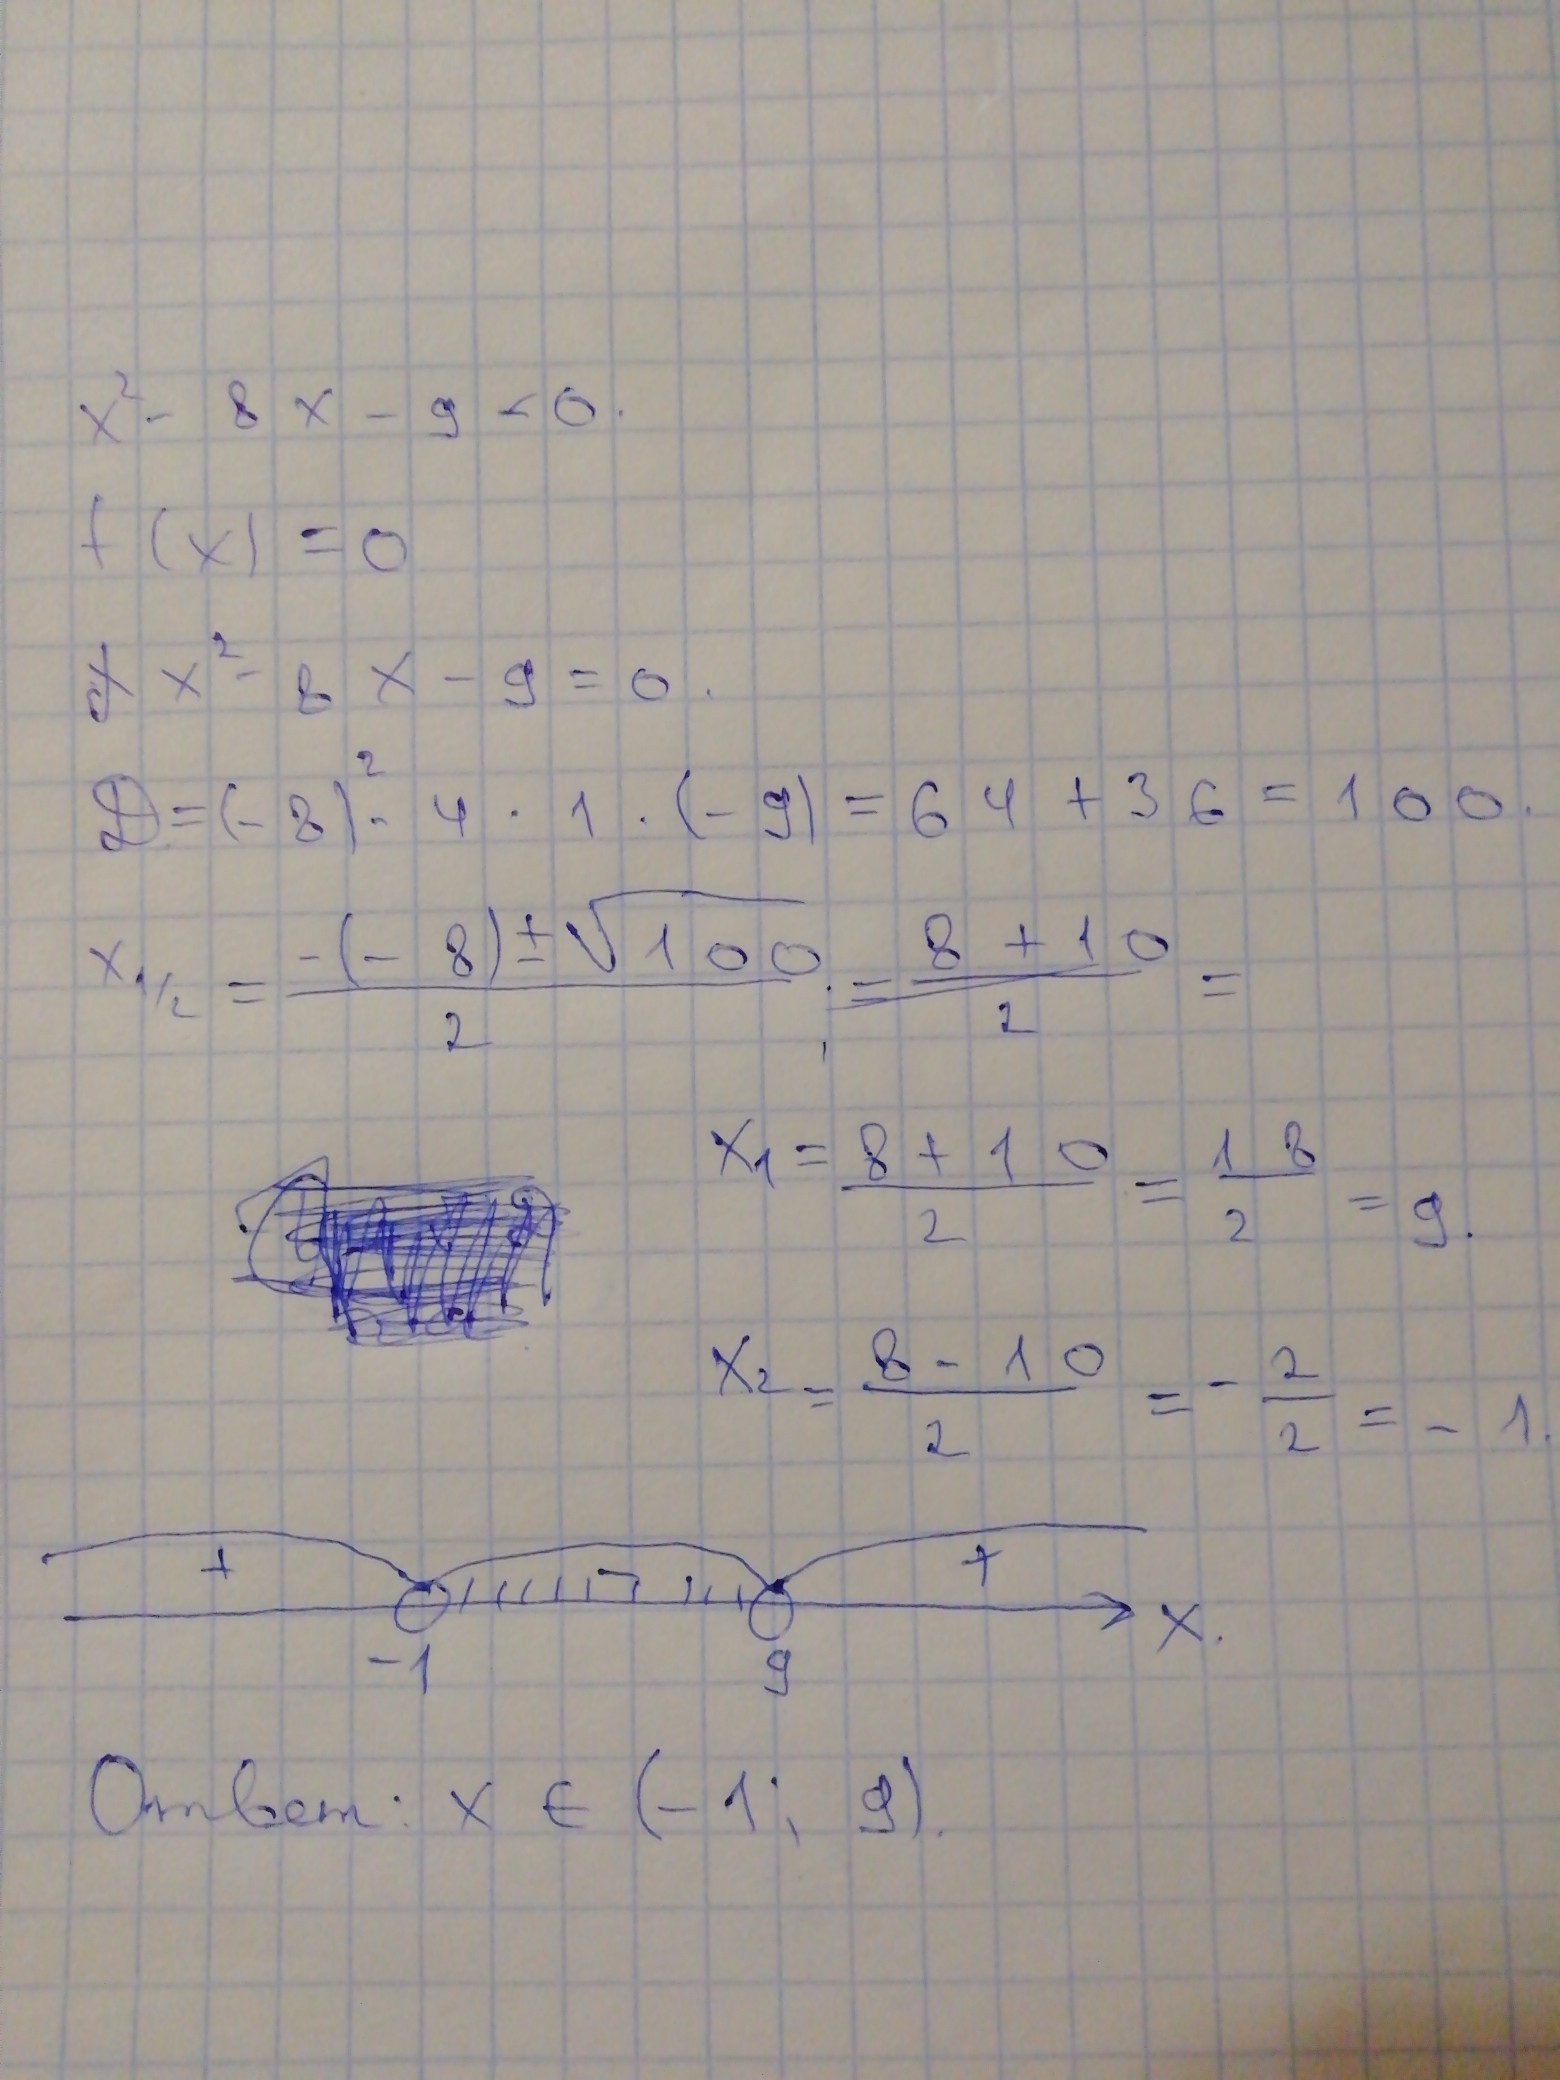 x² - 8x - 9 < 0.
f(x) = 0
x² - 8x - 9 = 0.
D = (-8)² - 4 · 1 · (-9) = 64 + 36 = 100.
x₁/₂ = (-(-8) ± √100) / 2 = (8 + 10) / 2 =
x₁ = (8 + 10) / 2 = 18 / 2 = 9.
x₂ = (8 - 10) / 2 = - 2 / 2 = - 1.
+ - +
-1 9 x.
Ответ: x ∈ (-1; 9).